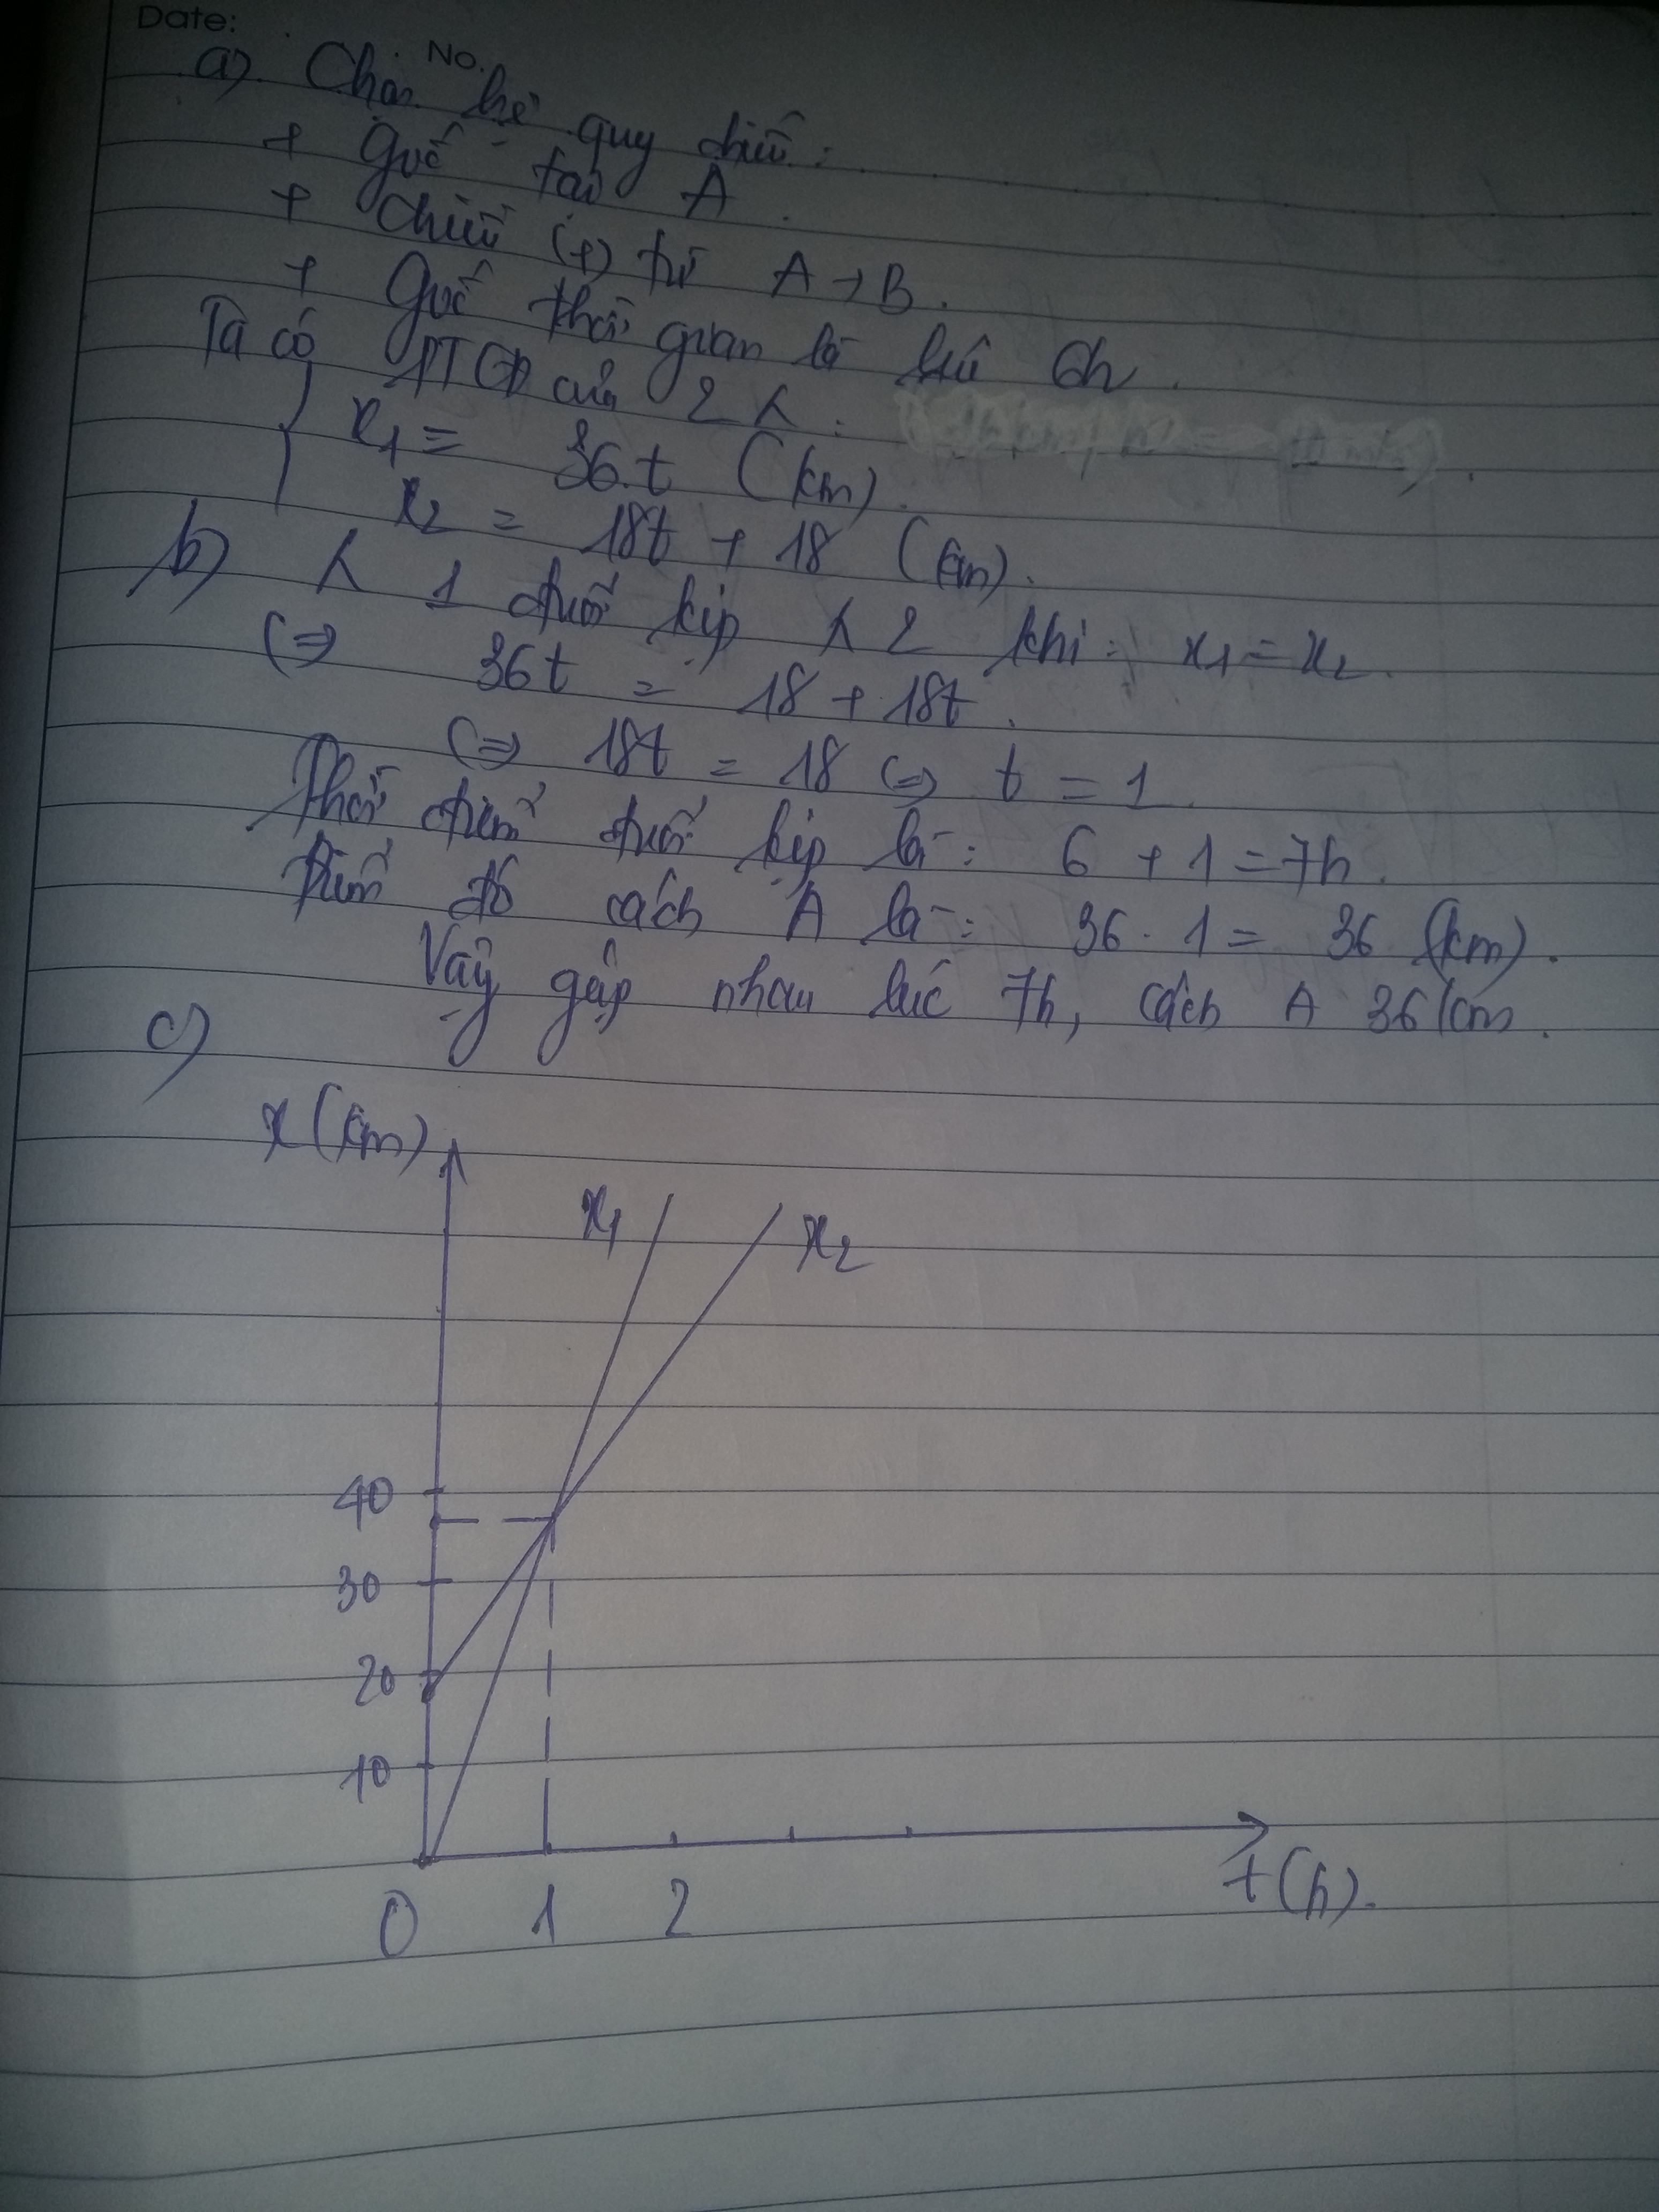 Date:
No.
a) Chọn hệ quy chiếu:
+ Gốc tại A.
+ Chiều (+) từ A → B.
+ Gốc thời gian là lúc 6h.
Ta có PTCĐ của 2 :
x1 = 36.t (km).
x2 = 18t + 18 (km).
b) 1 đuổi kịp 2 khi: x1 = x2.
(=> 36t = 18 + 18t.
(=> 18t = 18 (=> t = 1
Thời điểm đuổi kịp là: 6 + 1 = 7h.
Điểm đó cách A là: 36 . 1 = 36 (km).
Vậy gặp nhau lúc 7h, cách A 36 km.
c)
x (km)
x1
x2
40
30
20
10
0 1 2
t (h).